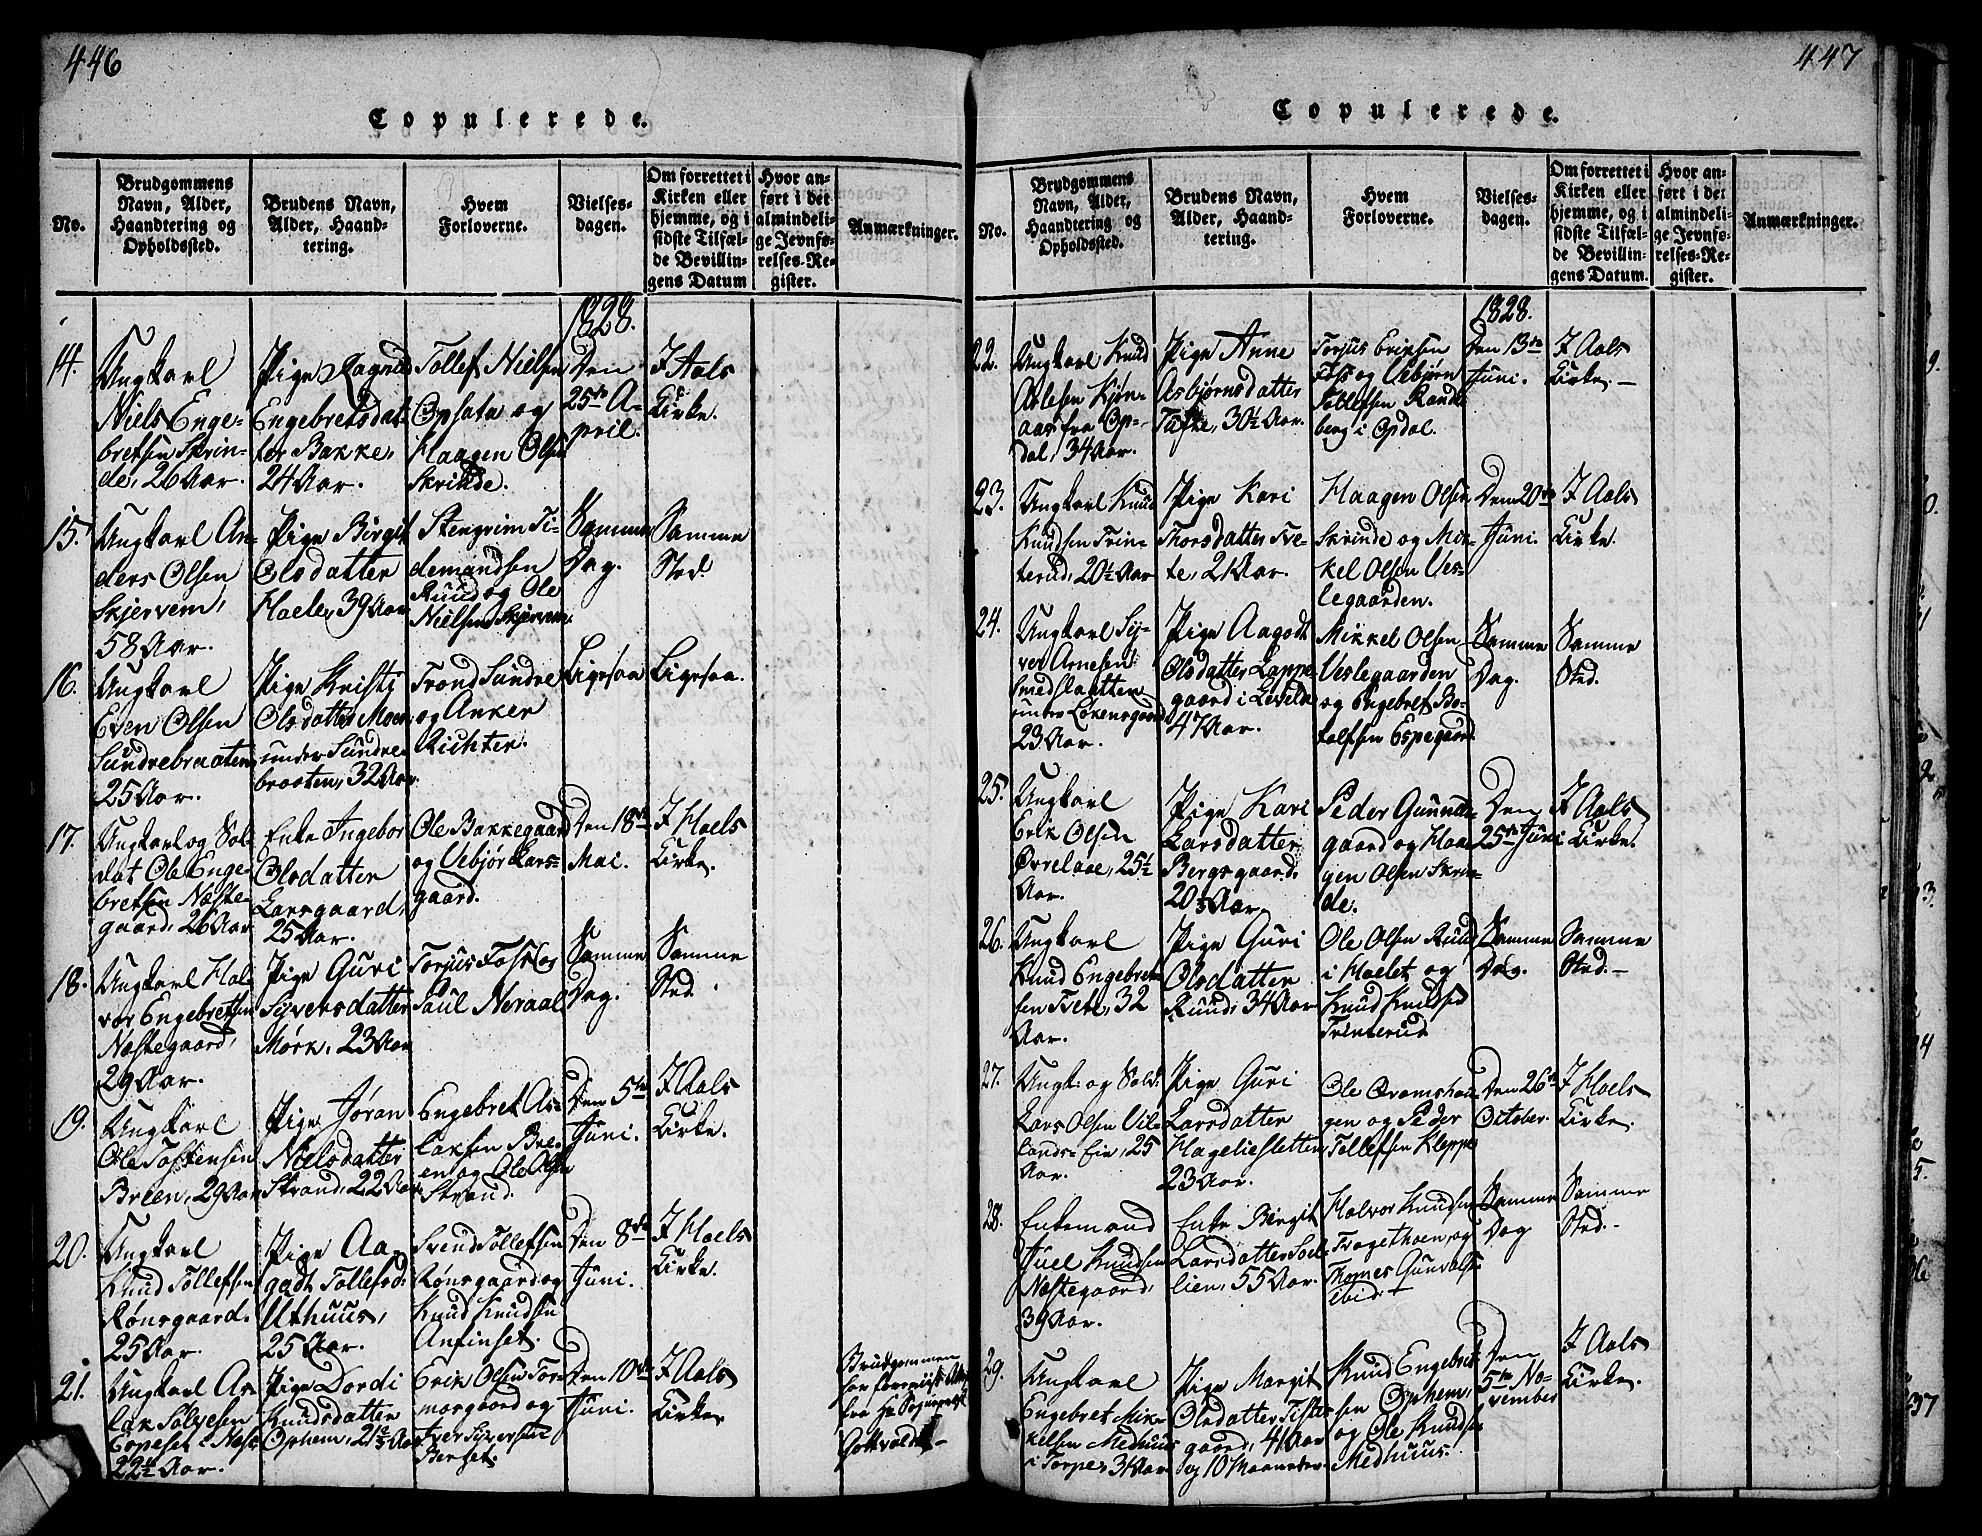 446
Copulerede.
No.
Brudgommens Navn, Alder, Haandtering og Opholdssted.
Brudens Navn, Alder, Haandtering.
Hvem Forloverne.
Vielsesdagen.
Om forrettet i Kirken eller hjemme, og i sidste Tilfælde Bevillingens Datum
Hvor anført i det almindelige Jevnførelses-Register.
Anmærkninger.
1828.
14.
Ungkarl
Niels Enge-
bretsen Skrin-
de, 26 Aar.
Pige Ragnild
Engebretsdat-
ter Bakke,
24 Aar.
Tollef Nielsen
Opsata og
Haagen Olsen
Skrinde.
Den
25de A-
pril.
I Aals
Kirke.
15.
Ungkarl An-
ders Olsen
Skjervem,
58 Aar.
Pige Birgit
Olsdatter
Hoele, 39 Aar
Stengrim Ti-
demandsen
Ruud og Ole
Nielsen Skjervem.
Samme
Dag.
Samme
Sted.
16.
Ungkarl
Even Olsen
Sundrebraaten
25 Aar.
Pige Kristi
Olsdatter Moen
under Sundre-
braaten, 32 Aar
Trond Sundre
og Anker
Richter.
Ligesaa
Ligesaa.
17.
Ungkarl og Sol-
dat Ole Enge-
bretsen Næste-
gaard, 26 Aar
Enke Ingebor
Olsdatter
Larsgaard,
25 Aar.
Ole Bakkegaard
og Uebjør Lars-
gaard.
Den 18de
Mai.
I Hoels
Kirke.
18.
Ungkarl Hal-
vor Engebretsen
Næstegaard,
29 Aar.
Pige Guri
Syversdatter
Mørk, 23 Aar
Torjus Foss og
Paul Noraal
Samme
Dag.
Samme
Sted.
19.
Ungkarl
Ole Tostensen
Breen, 29 Aar
Pige Jøran
Nielsdatter
Strand, 22 Aar
Engebret As-
laksen Bre-
en og Ole Olsen
Strand.
Den 5te
Juni.
I Aals
Kirke.
20.
Ungkarl
Knud Tollefsen
Rønsgaard.
25 Aar.
Pige Aa-
gadt Tollefsd:
Uthuus,
25 Aar.
Svend Tollefsen
Rønsgaard og
Knud Knudsen
Anfinset.
Den 8de
Juni.
I Hoels
Kirke.
21.
Ungkarl As-
lak Sølvesen
22½ Aar.
Pige Dordi
Knudsdatter
Ophem, 21⅔ Aar
Erik Olsen Tor-
mosgaard og
Iver Syversen
Berset.
Den 10de
Juni.
I Aals
Kirke
Brudgommen
har foreviist
fra Hr Sognepræst
447
Copulerede.
No.
Brudgommens Navn, Alder, Haandtering og Opholdssted.
Brudens Navn, Alder, Haandtering.
Hvem Forloverne.
Vielsesdagen.
Om forrettet i Kirken eller hjemme, og i sidste Tilfælde Bevillingens Datum.
Hvor anført i det almindelige Jevnførelses-Register.
Anmærkninger.
1828.
22.
Ungkarl Knud
Aslesen Kjøn-
aas fra Op-
dal, 34 Aar.
Pige Anne
Asbjørnsdatter
Tufte, 30½ Aar.
Torjus Eriksen
Foss og Uebjørn
Tollefsen Rande-
berg i Opdal.
Den 13de
Juni.
I Aals
Kirke.-
23.
Ungkarl Knud
Knudsen Trin-
terud, 20½ Aar
Pige Kari
Thorsdatter Tve-
te, 21 Aar.
Haagen Olsen
Skrinde og Mik-
kel Olsen Ves-
legaarden.
Den 20de
Juni.
I Aals
Kirke.
24.
Ungkarl Sy-
ver Arnesen
Smedslaatten
under Løkensgaard
23 Aar.
Pige Aagodt
Olsdatter Lappe-
gaard i
47 Aar.
Mikkel Olsen
Veslegaarden
og Engebret Bo-
tolfsen Espegaard
Samme
Dag.
Samme
Sted.
25.
Ungkarl
Erik Olsen
Øvrelaae, 25½
Aar.
Pige Kari
Larsdatter
Bergsgaard.
20⅓ Aar.
Peder Gunnild-
gaard og Haa-
gen Olsen Skrin-
de.
Den
25de Juni
I Aals
Kirke.
26.
Ungkarl
Knud Engebret-
sen Tvete, 32
Aar.
Pige Guri
Olsdatter
Ruud, 34 Aar
Ole Olsen Ruud
i Hoelet og
Knud Knudsen
Trinterud
Samme
Dag.
Samme
Sted.-
27.
Ungk: og Sold:
Lars Olsen Vil-
lands-Eie, 25
Aar.
Pige Guri
Larsdatter
Hagliesletten
23 Aar.
Ole Qvamshau-
gen og Peder
Tollefsen Kleppe
Den 26de
October
I Hoels
Kirke.
28.
Enkemand
Juel Knudsen
Næstegaard,
39 Aar.
Enke Birgit
Larsdatter Soel-
lien, 55 Aar.
Halvor Knudsen
Tragethoen, og
Thomes Gunvalds:
ibid:
Samme
Dag
Samme
Sted.-
29.
Ungkarl
Engebret Mik-
kelsen Medhuus
i Torpe, 31 Aar
Pige Margit
Olsdatter Tister-
gaard, 41 Aar
og 10 Maaneder.
Knud Engebret-
sen Ophem,
og Ole Knudsen
Medhuus.
Den
5te No-
vember
I Aals
Kirke.